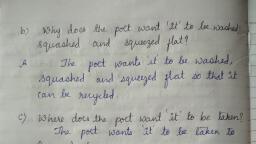 b) Why does the poet want 'it' to be washed,
squashed and squeezed flat?
A The poet wants it to be washed,
squashed and squeezed flat so that it
can be recycled.
c) Where does the poet want 'it' to be taken?
The poet wants 'it' to be taken to